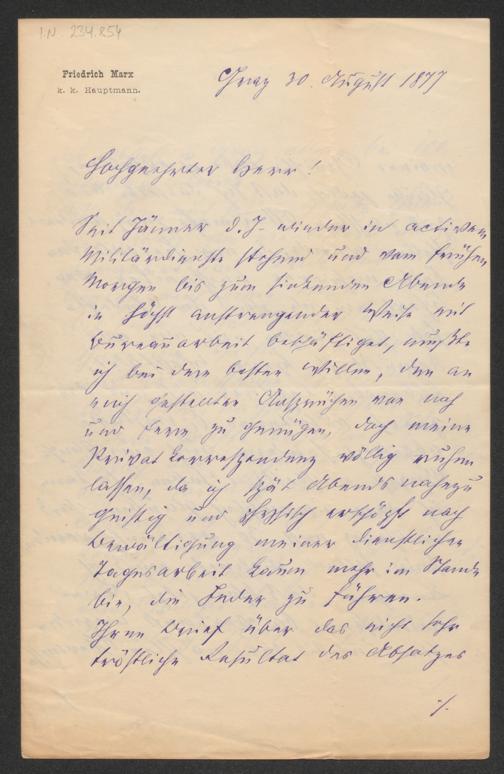 I.N. 234.854
Friedrich Marx
k. k. Hauptmann.
Graz 30. August 1877
Hochgeehrter Herr!
Seit Jänner d. J. wieder in activem
Militärdienste stehend und vom frühen
Morgen bis zum sinkenden Abende
in höchst anstrengender Weise mit
Bureauarbeit beschäftiget, mußte
ich bei dem besten Willen, den an
mich gestellten Ansprüchen von nah
und fern zu genügen, doch meine
Privat Correspondenz völlig ruhen
lassen, da ich spät Abends nahezu
geistig und physisch erschöpft nach
Bewältigung meiner dienstlichen
Tagesarbeit kaum mehr im Stande
bin, die Feder zu führen.
Ihren Brief über das nicht sehr
tröstliche Resultat des Absatzes
./.